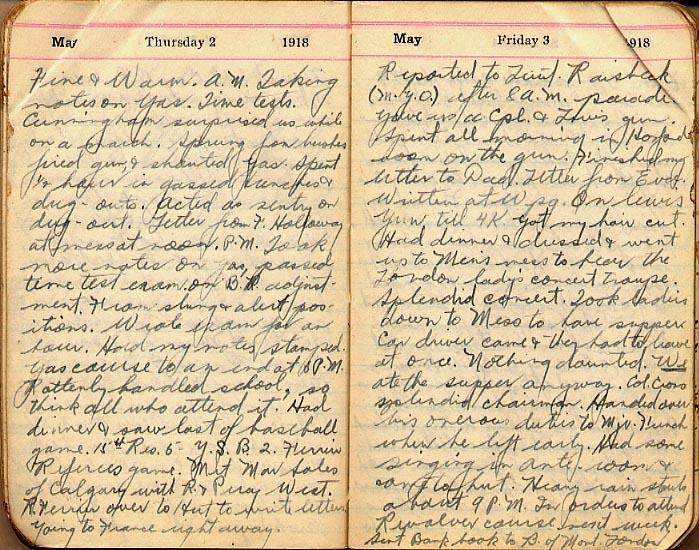 May Thursday 2 1918
Fine & Warm. A.M. Taking
notes on Gas. Time tests.
Cunningham surprised us while
on a march. Sprung from bushes
fired gun & shouted Gas. Spent
½ hour in gassed trenches &
dug-outs. Acted as sentry on
dug-out. Letter from F. Holloway
at mess at noon. P.M. Took
more notes on gas, passed
time test exam. on B.R. adjust-
ment. From slung & alert pos-
itions. Wrote exam for an
hour. Had my notes stamped.
Gas course to an end at 5 P.M.
Rottenly handled school, so
think all who attend it. Had
dinner & saw last of baseball
game. 15th Res. 6 - Y.S.B. 2. Ferrier
Referees game. Met Mar Sales
of Calgary with R. & Percy West.
R. Ferrier over to Hut to write letters
going to France right away.
May Friday 3 1918
Reported to Lieut. Raisbeck
(M.G.O.) after 8 A.M. parade.
Gave us a Cpl. & Lewis gun.
Spent all morning in
room on the gun. Finished my
letter to Dad. Letter from Eva.
Written at Wpg. On Lewis
Gun till 4K. Got my hair cut.
Had dinner & dressed & went
up to Men's mess to hear the
London lady's concert troupe.
Splendid concert. Took ladies
down to Mess to have supper
Car driver came & they had to leave
at once. Nothing daunted. We
ate the supper anyway. Col. Cross
splendid chairman. Handed over
his onerous duties to Mjr.
when he left early. Had some
singing in ante-room &
came to hut. Heavy rain starts
about 9 P.M. In orders to attend
Revolver course next week.
Sent Bank book to B. of Mont. London